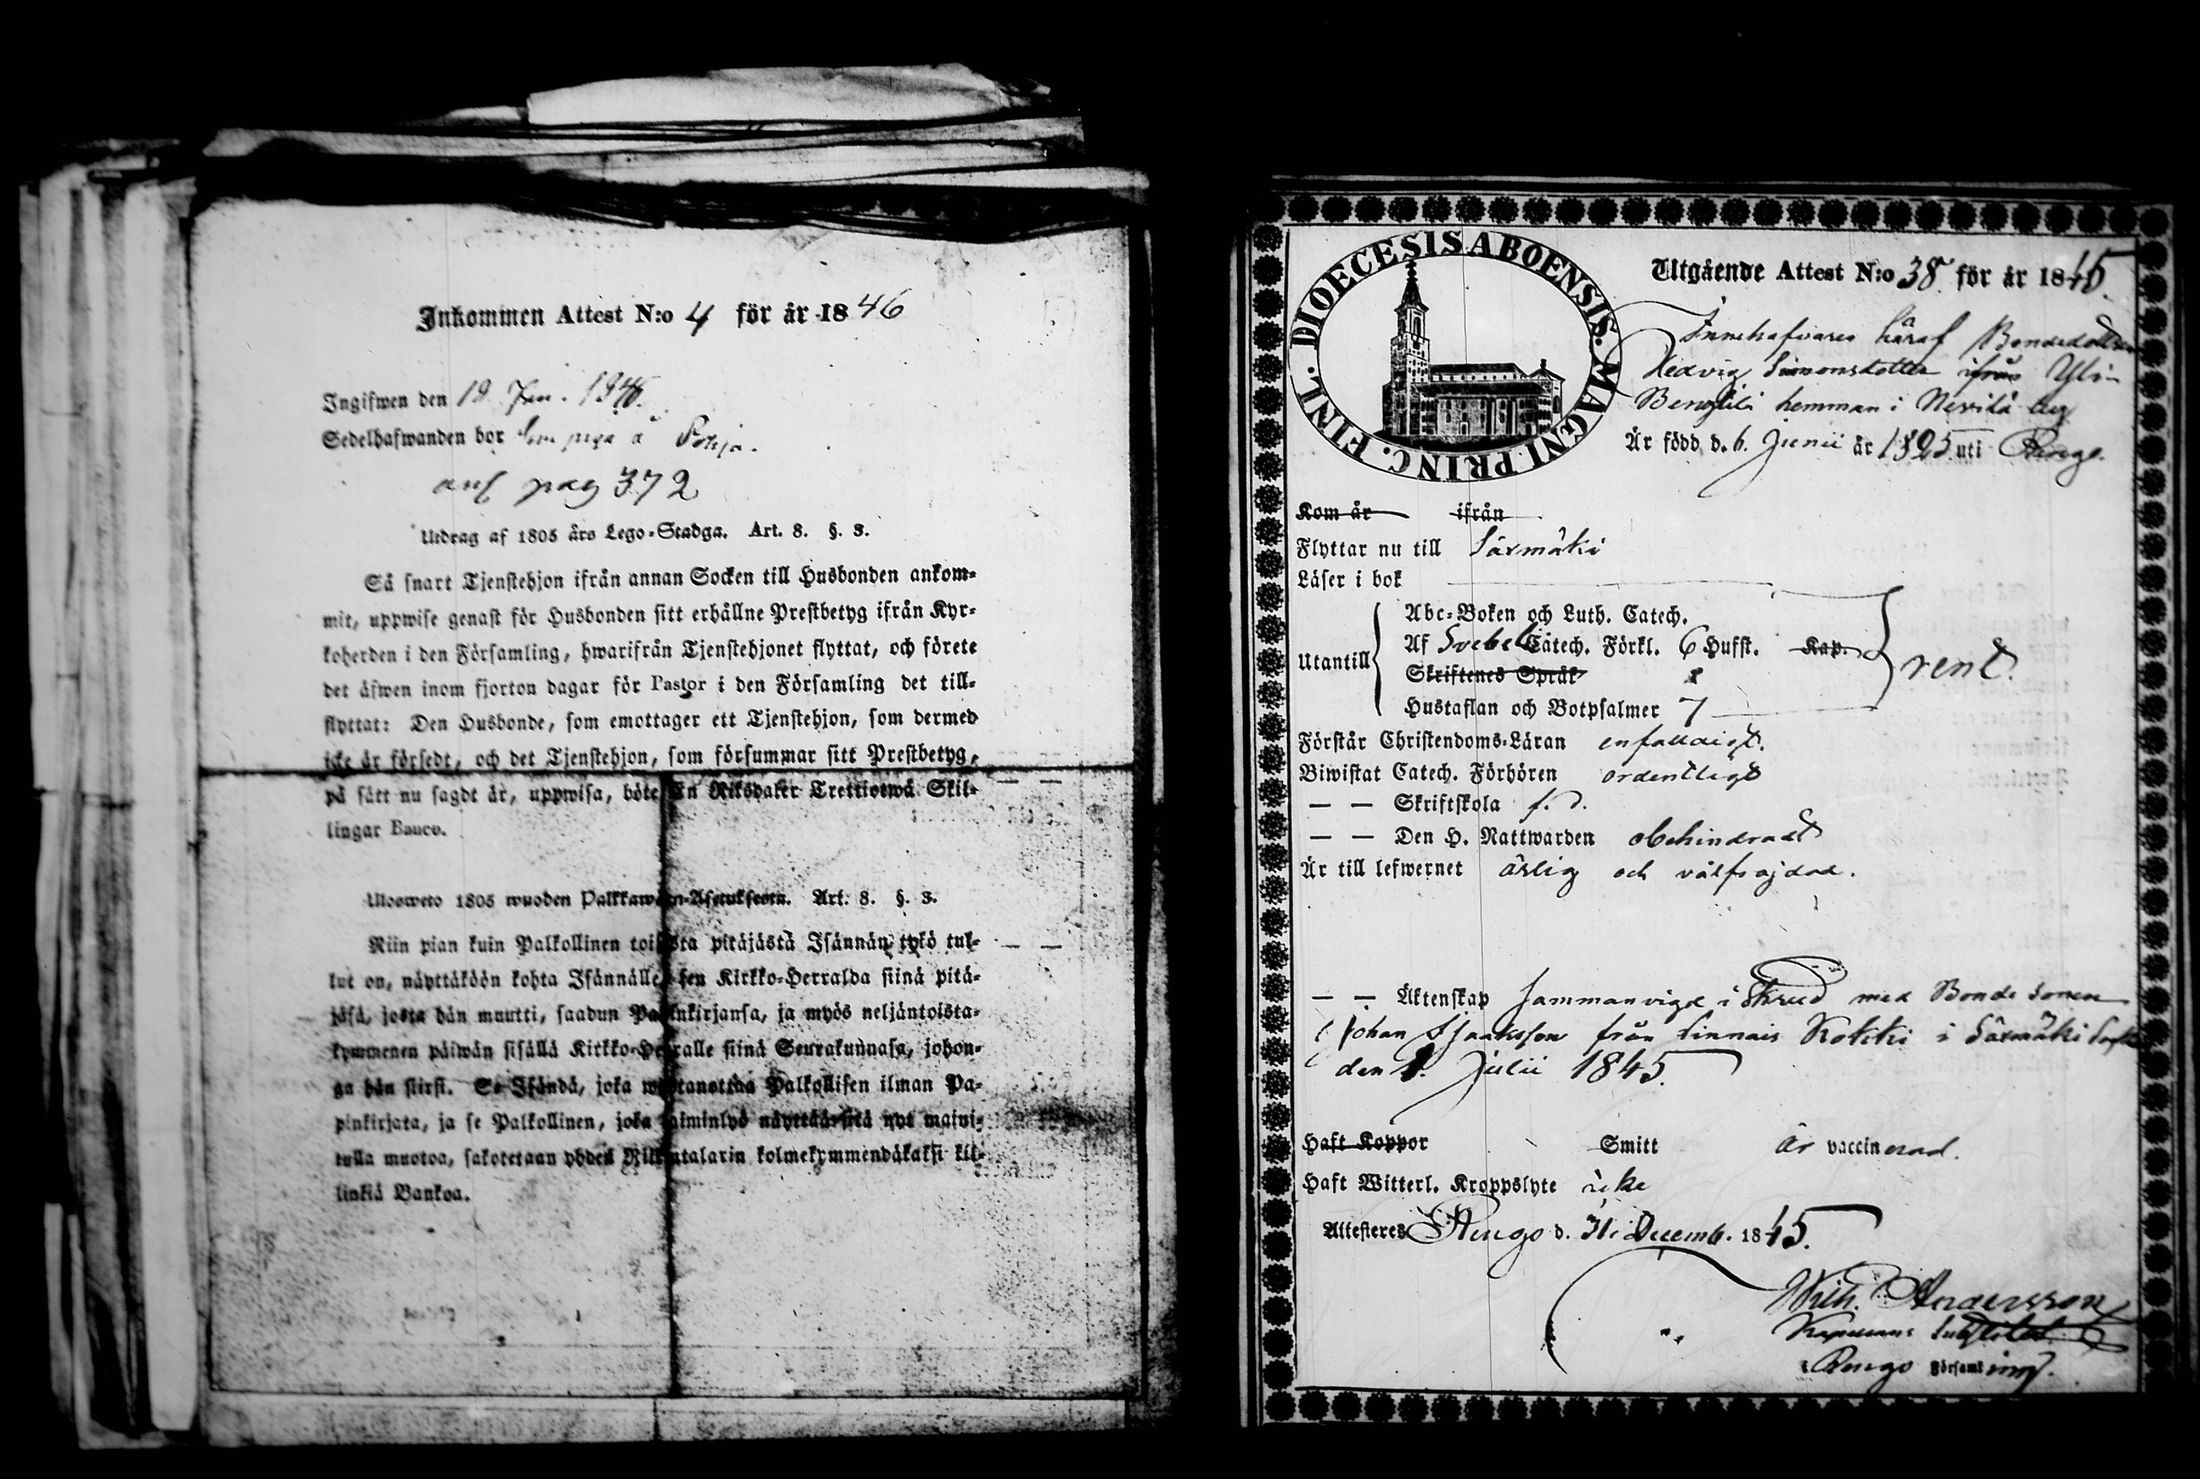 Inkommen Attest N:o 4 för år 1846
Ingifwen den 19 Jan. 1846.
Sedelhafwanden bor som piga å Pohja.
anf pag 372
Utdrag af 1805 års Lego-Stadga. Art. 8. §. 3.
Så snart Tjenstehjon ifrån annan Socken till Husbonden ankom-
mit, uppwise genast för Husbonden sitt erhållne Prestbetyg ifrån Kyr-
koherden i den Församling, hwarifrån Tjenstehjonet flyttat, och förete
det äfwen inom fjorton dagar för Pastor i den Församling det till-
flyttat: Den Husbonde, som emottager ett Tjenstehjon, som dermed
icke är försedt, och det Tjenstehjon, som försummar sitt Prestbetyg,
på sätt nu sagdt är, uppwisa, böte En Riksdaler Trettiotwå Skil-
lingar Banco.
Ulosweto 1805 wuoden Palkkawäen-Asetuksesta. Art. 8. §. 3.
Niin pian kuin Palkollinen toisesta pitäjästä Isännän tykö tul-
lut on, näyttäköön kohta Isännälle sen Kirkko-Herralda siinä pitä-
jäsä, josta hän muutti, saadun Papinkirjansa, ja myös neljäntoista-
kymmenen päiwän sisällä Kirkko-Herralle siinä Seurakunnasa, johon-
ga hän siirsi. Se Isändä, joka wastanottaa Palkollisen ilman Pa-
pinkirjata, ja se Palkollinen, joka laiminlyö näyttää sitä nyt mainі-
tulla muotoa, sakotetaan yhden Riikintalarin kolmekymmendäkaksi kil-
linkiä Bankoa.
DIOECESIS ABOENSIS. MAGNI PRINC. FINL.
Utgående Attest N:o 38 för år 1845.
Innehafvaren häraf Bondedottren
Hedvig Simonsdotter ifrån Yli-
Bengtilä hemman i Nevilä by
Är född d. 6. Junii år 1825 uti Rengo.
Kom år ifrån
Flyttar nu till Säxmäki
Läser i bok
Abc-Boken och Luth. Catech.
Af Svebeli Catech. Förkl. 6 Hufst. Kap.
Utantill Skriftenes Språk rent.
Hustaflan och Botpsalmer 7
Förstår Christendoms-Läran enfaldigt.
Biwistat Catech. Förhören ordentligt
— — Skriftskola f. d.
— — Den H. Nattwarden obehindradt
Är till lefwernet ärlig och välfrejdad.
— — Äktenskap Sammanvigd i Stånd med Bonde Sonen
Johan Isaaksson från Sinnais Kokki i Säxmäki
den 1. Julii 1845.
Haft Koppor Smitt är vaccinerad.
Haft Witterl. Kroppslyte icke
Attesteres Rengo d. 31 Decemb. 1845.
Wilh. Andersson
Kapellans Substitut
i Rengo Församling.